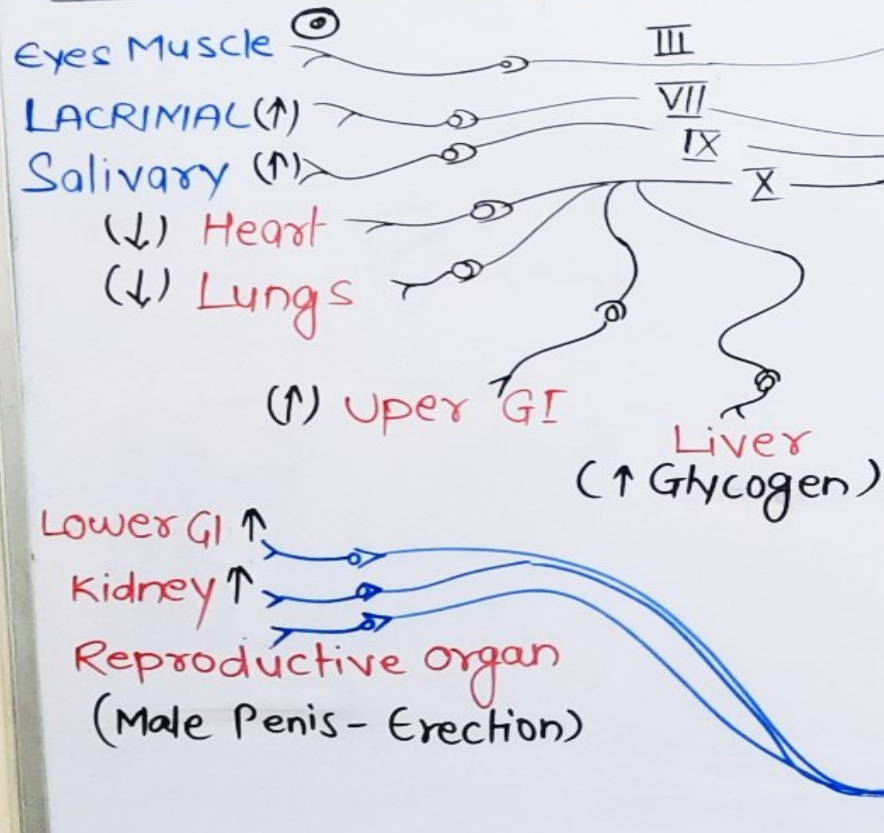 Eyes Muscle III
LACRIMAL (↑) VII
Salivary (↑) IX
(↓) Heart X
(↓) Lungs
(↑) Uper GI
Liver
(↑ Glycogen)
Lower GI ↑
Kidney ↑
Reproductive organ
(Male Penis - Erection)